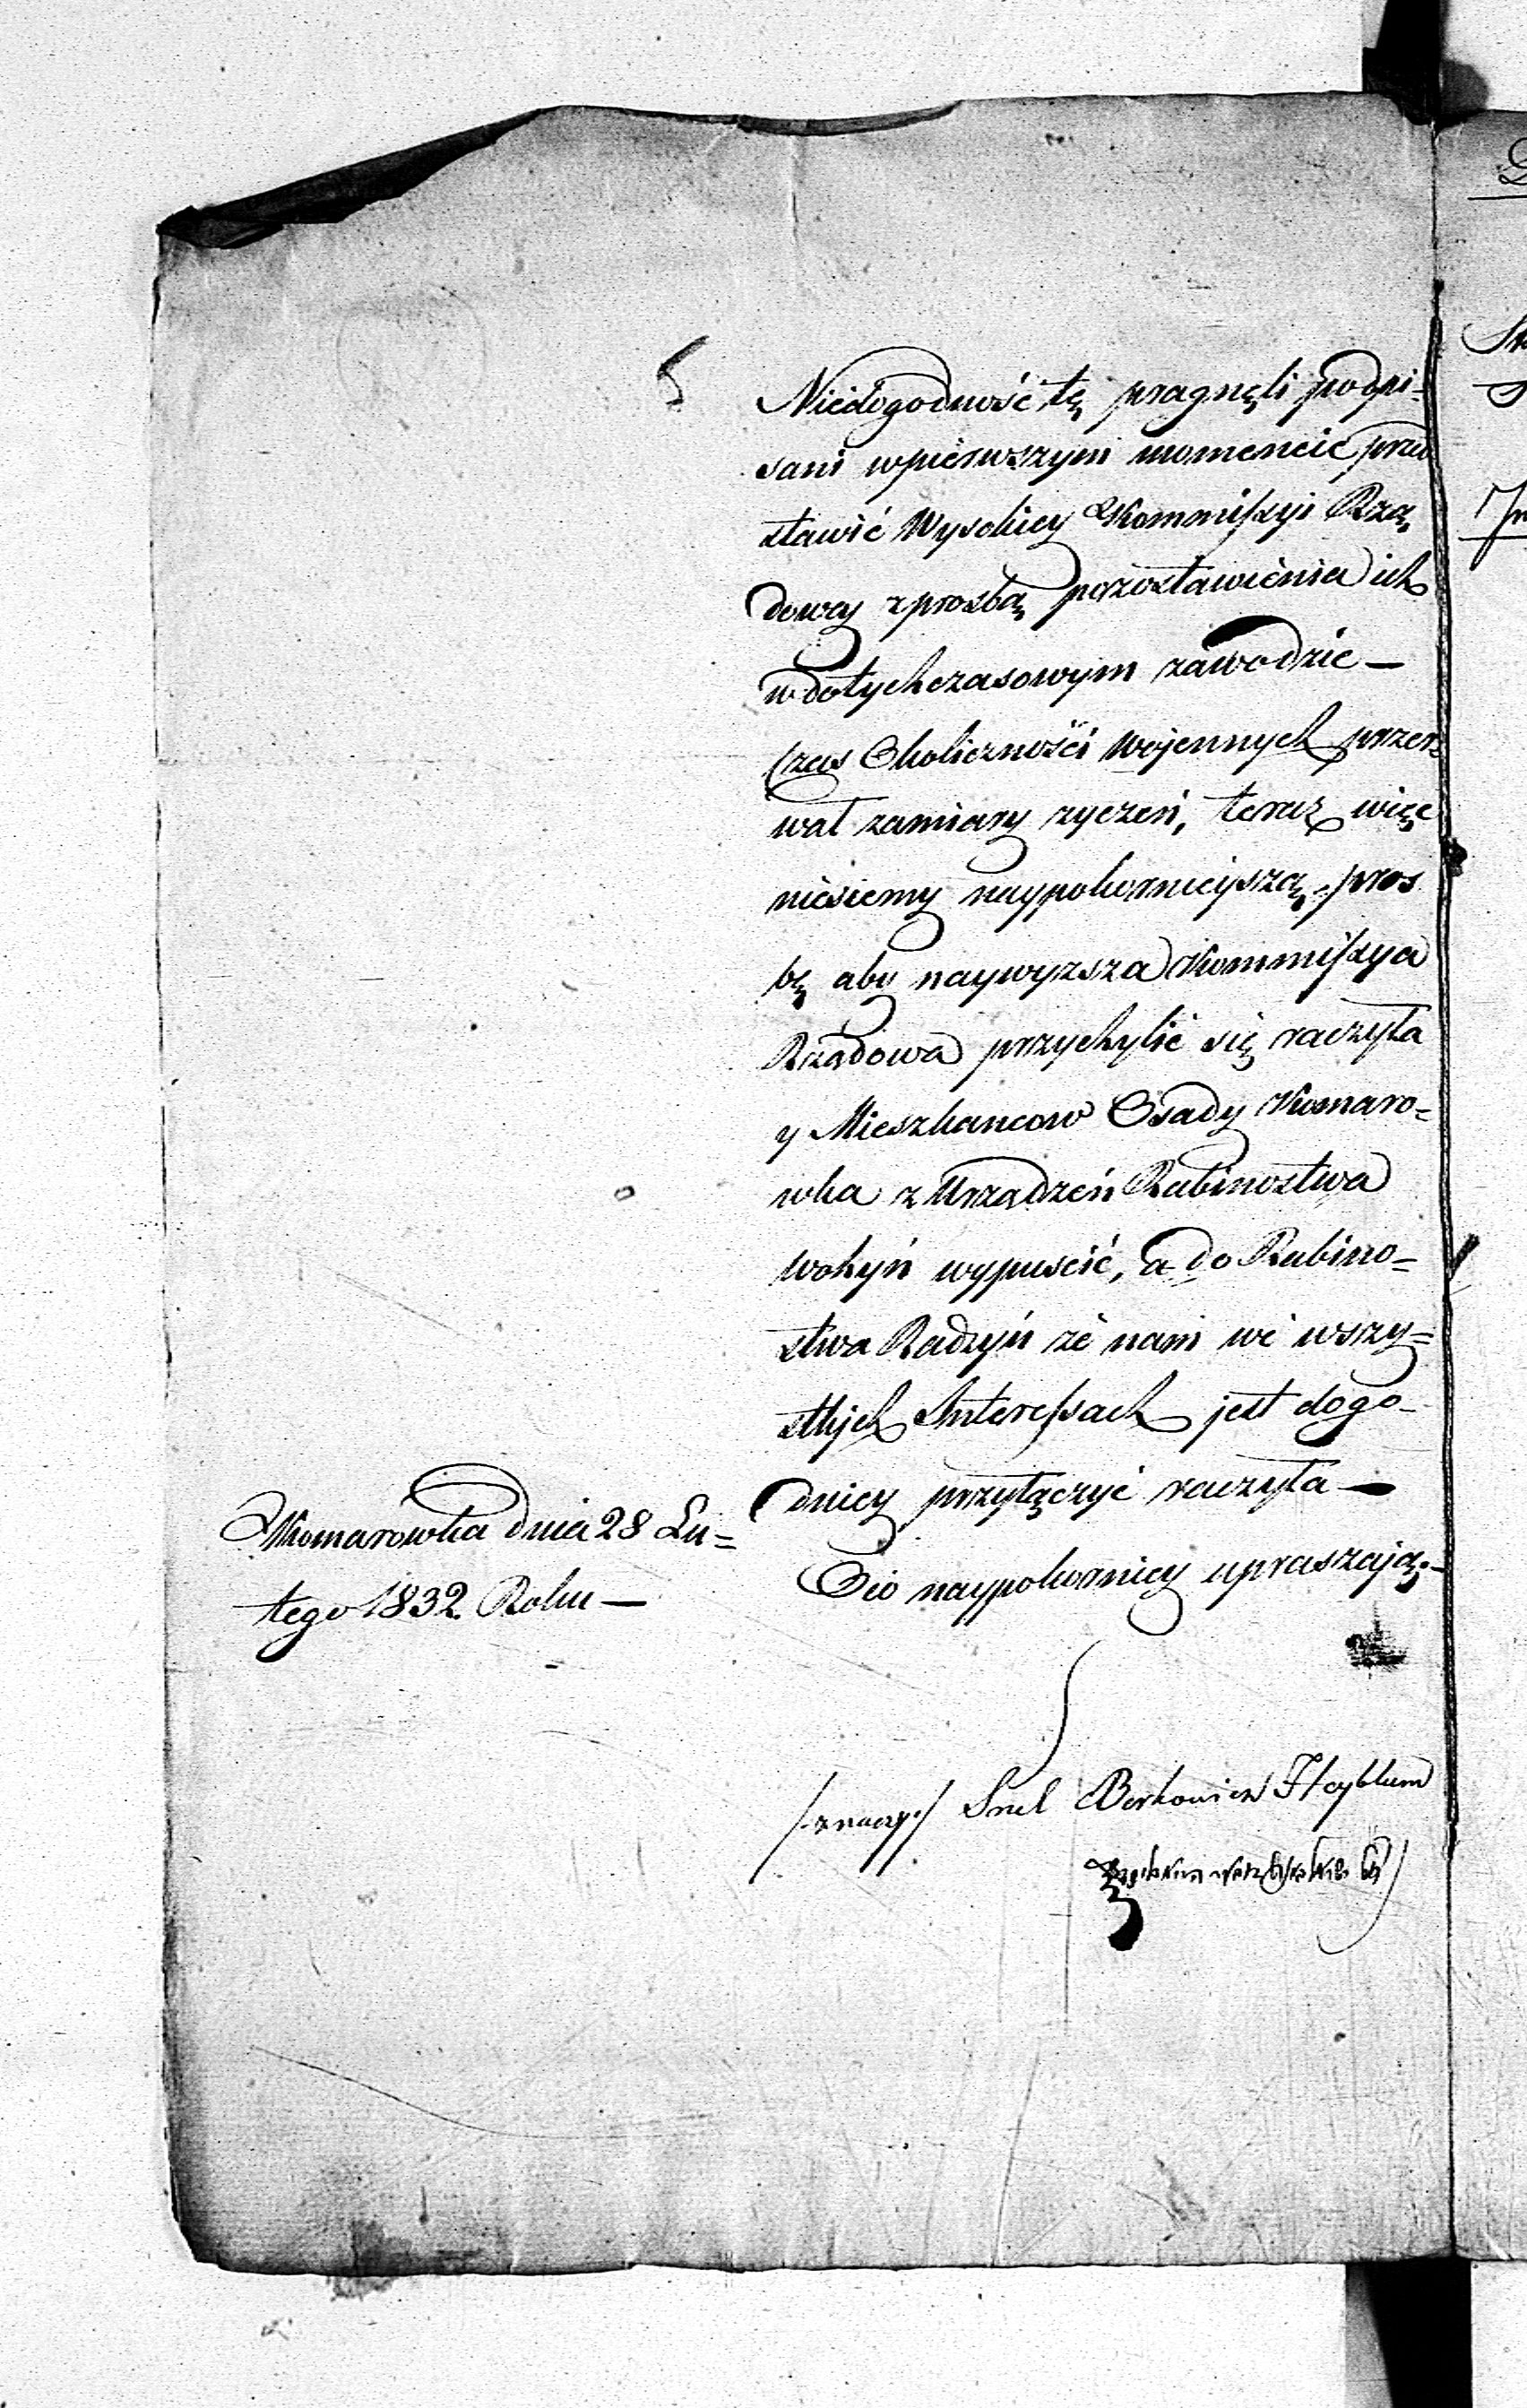 Niedogodność tę pragnęli podpi-
sani wpierwszym momencie przed
stawić Wysokiey Kommissyi Rzą
dowey z prosbą pozostawienia ich
w dotychczasowym zawodzie —
Czas Okoliczności Wojennych przer-
wał zamiary zyczeń, teraz więc
niesiemy naypokornieyszą pros
bę aby naywyzsza Kommissya
Rządowa przychylić się raczyła
y Mieszkancow Osady Komaro=
wka z Urządzeń Rabinostwa
Wohyń wypuscić, a do Rabino=
stwa Radzyń ze nam we wszy=
stkich Interessach jest dogo-
dniey przyłączyć raczyła —
Oio naypokorniey upraszają.—
Komarówka dnia 28 Lu=
tego 1832 Roku —
Srul Berkowicz Heyblum